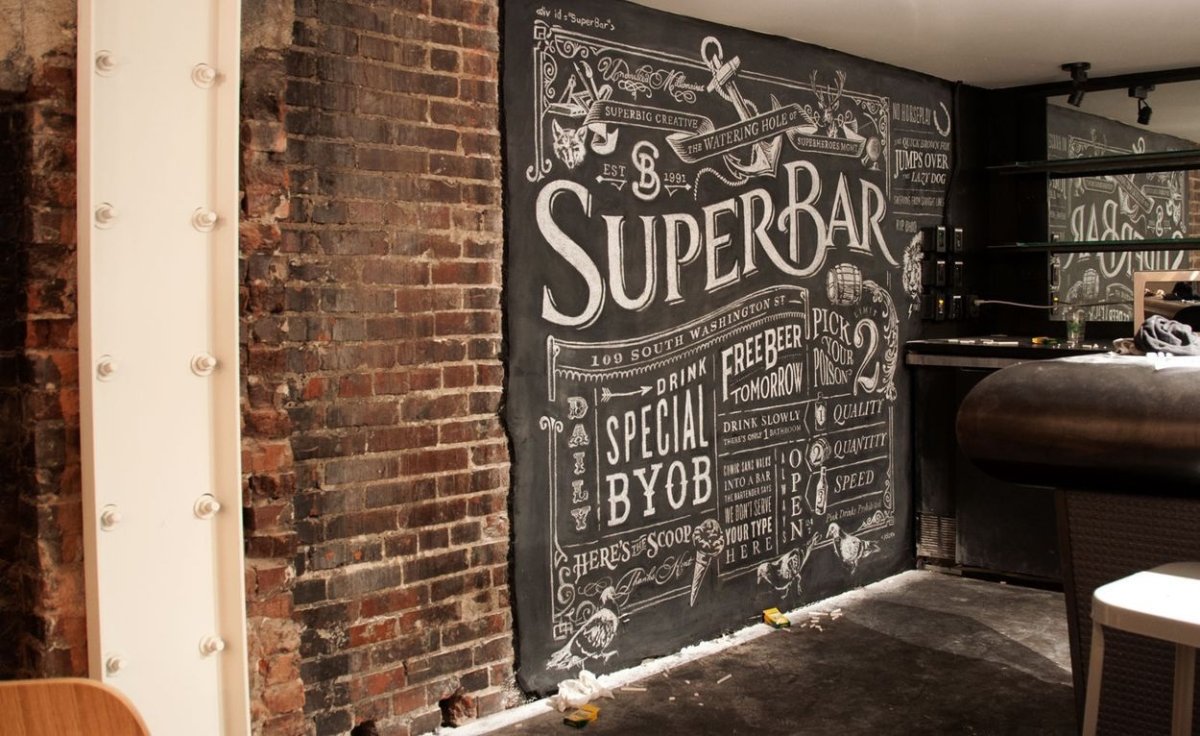 <div id="SuperBar">
Unmoneyed Millionaires
SUPERBIG CREATIVE
THE WATERING HOLE OF
SUPERHEROES MGMT.
EST SB 1991
SUPERBAR
109 SOUTH WASHINGTON ST
DAILY
DRINK
SPECIAL
BYOB
FREE BEER
TOMORROW
DRINK SLOWLY
THERE'S ONLY 1 BATHROOM
COMIC SANS WALKS
INTO A BAR
THE BARTENDER SAYS
WE DON'T SERVE
YOUR TYPE
HERE
ALWAYS
OPEN
LIMIT
PICK
YOUR
POISON
2
1 QUALITY
2 QUANTITY
SPEED
Pink Drinks Prohibited
HERE'S THE SCOOP
NO HORSEPLAY
THE QUICK BROWN FOX
JUMPS OVER
THE LAZY DOG